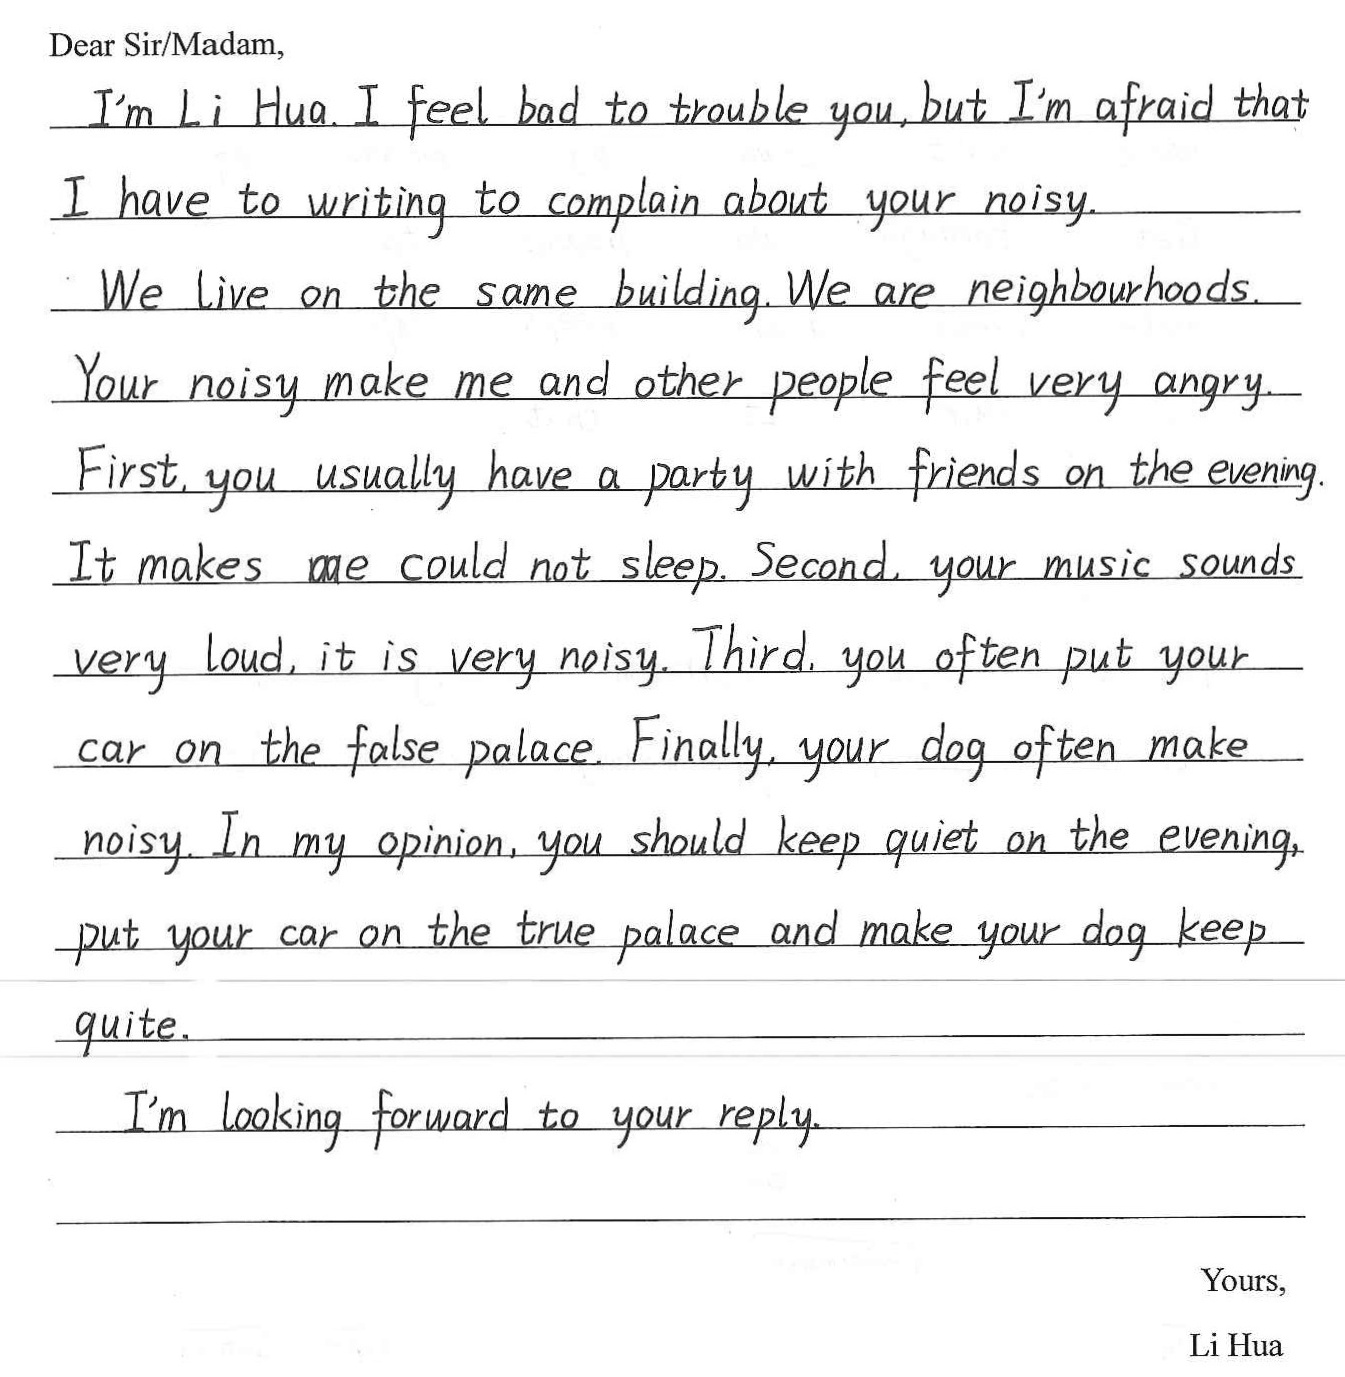 Dear Sir/Madam,
I'm Li Hua. I feel bad to trouble you, but I'm afraid that
I have to writing to complain about your noisy.
We live on the same building. We are neighbourhoods.
Your noisy make me and other people feel very angry.
First, you usually have a party with friends on the evening.
It makes me could not sleep. Second, your music sounds
very loud, it is very noisy. Third, you often put your
car on the false palace. Finally, your dog often make
noisy. In my opinion, you should keep quiet on the evening,
put your car on the true palace and make your dog keep
quite.
I'm looking forward to your reply.
Yours,
Li Hua